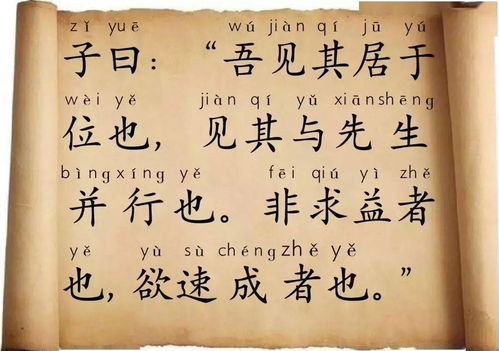 zǐ yuē wú jiàn qí jū yú
子曰：“吾见其居于
wèi yě jiàn qí yǔ xiānshēng
位也，见其与先生
bìngxíng yě fēi qiú yì zhě
并行也。非求益者
yě yù sù chéngzhě yě
也，欲速成者也。”